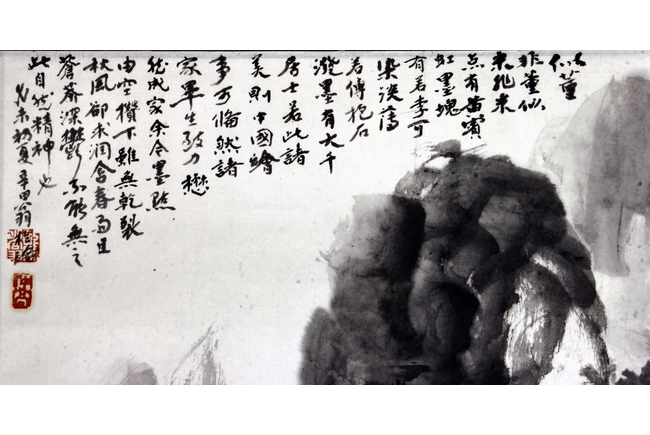 似董
非董似
米非米
点有黃賓
虹墨塊
有若李可
染淡蕩
若傅抱石
潑墨有大千
居士若此諸
美則中國繪
事可備然諸
家畢生致力
能成家余令墨點
由空攢下雖無乾裂
秋風卻求潤含春雨且
蒼莽深鬱不能無之
此自然精神也
乙未初夏辛田翁